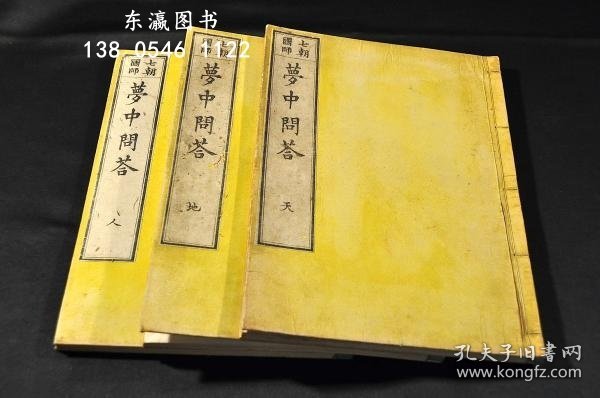 东瀛图书
138 0546 1122
七朝
國師
夢中問荅
人
七朝
國師
夢中問荅
地
七朝
國師
夢中問荅
天
孔夫子旧書网
www.kongfz.com